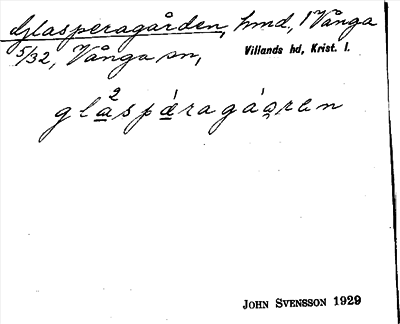 Glasperagården, hmd, 1 Vånga
5/32, Vånga sn, Villands hd, Krist. l.
gla²spǽragá̊ren
JOHN SVENSSON 1929